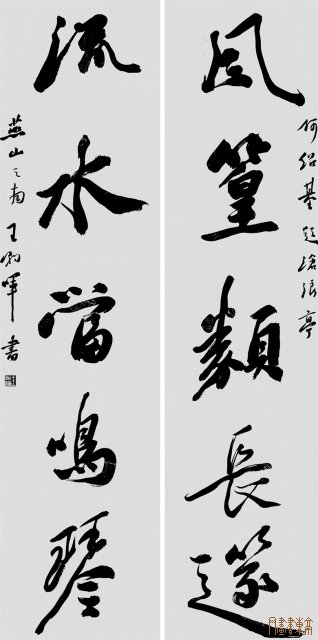 何紹基題滄浪亭
風篁類長篴
流水當鳴琴
燕山之南王軍書